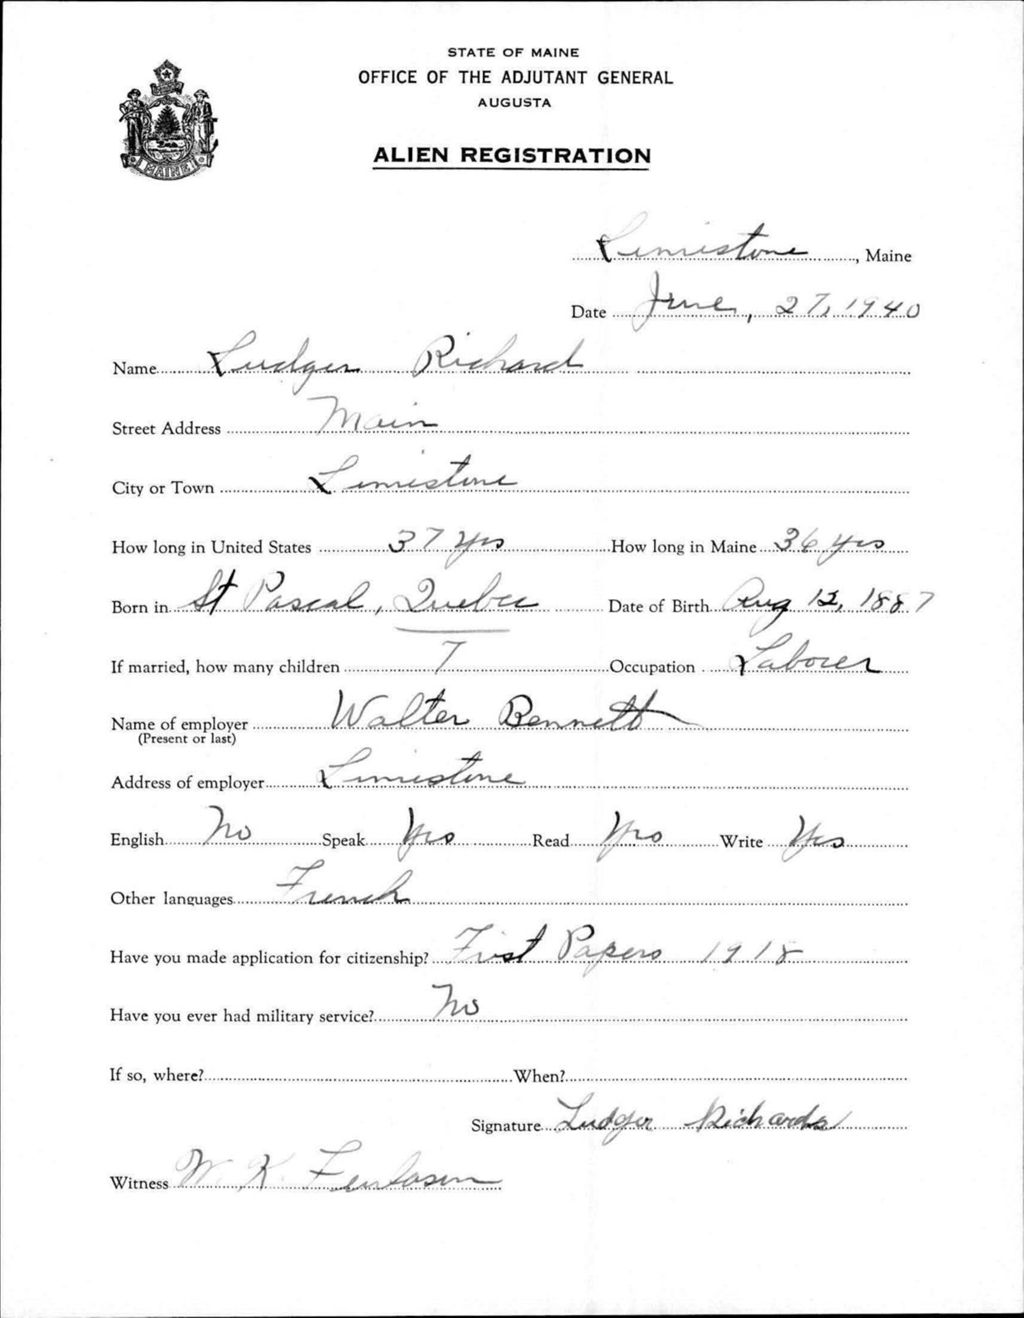 STATE OF MAINE
OFFICE OF THE ADJUTANT GENERAL
AUGUSTA
ALIEN REGISTRATION
MAINE
Limestone, Maine
Date June, 27, 1940
Name Ludger Richard
Street Address Main
City or Town Limestone
How long in United States 37 yrs How long in Maine 36 yrs
Born in St Pascal, Quebec Date of Birth Aug 12, 1887
If married, how many children 7 Occupation Laborer
Name of employer Walter Bennett
(Present or last)
Address of employer Limestone
English No Speak Yes Read Yes Write Yes
Other languages French
Have you made application for citizenship? First Papers 1918
Have you ever had military service? No
If so, where? When?
Signature Ludger Richards
Witness W. K.